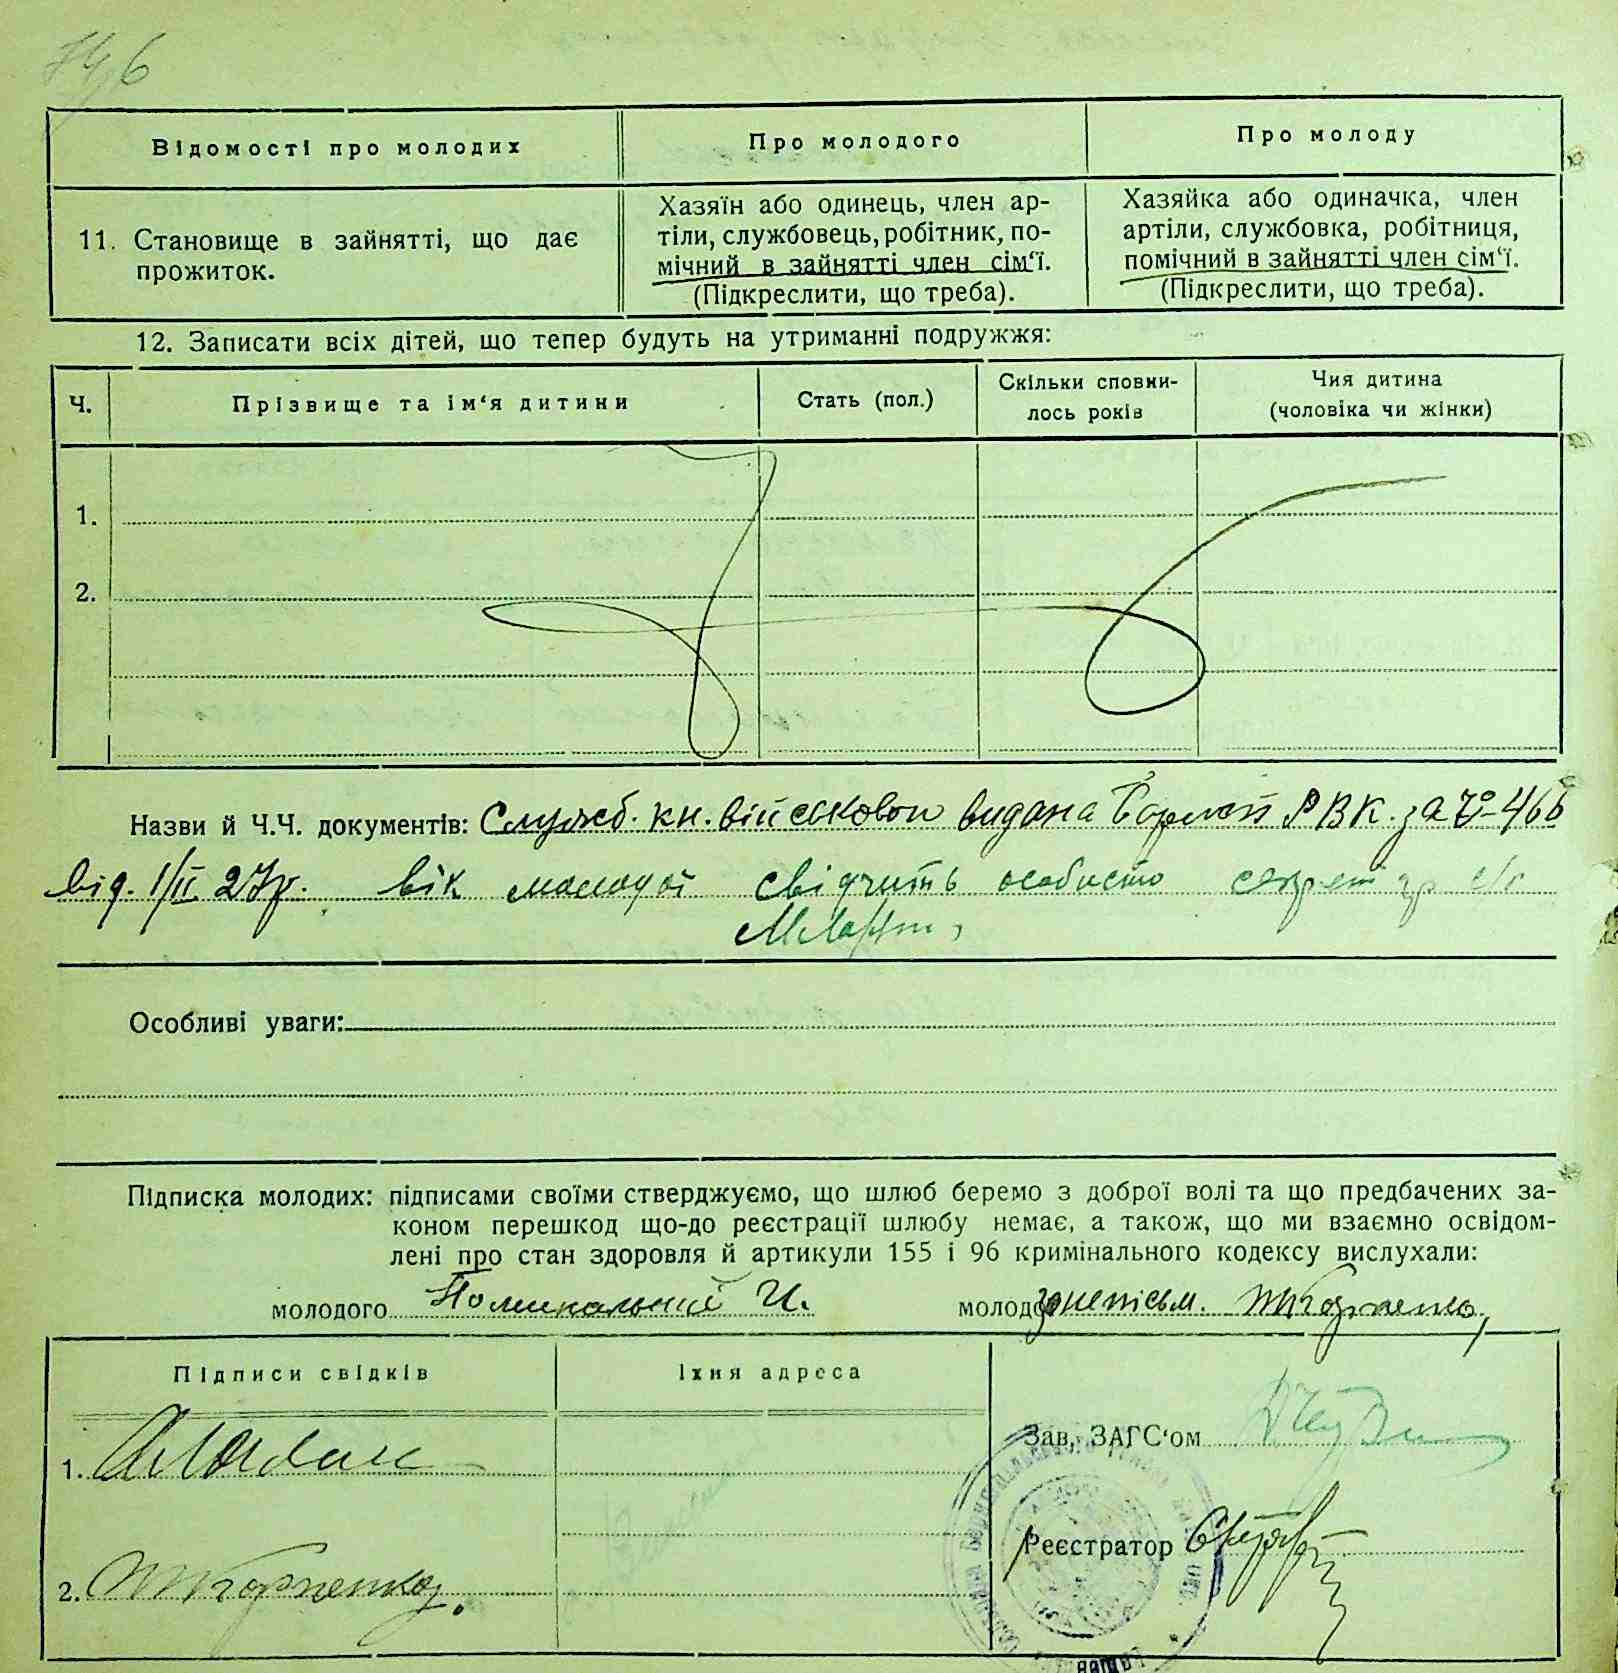 Відомості про молодих
Про молодого
Про молоду
11. Становище в зайнятті, що дає
прожиток.
Хазяїн або одинець, член ар-
тіли, службовець, робітник, по-
мічний в зайнятті член сім‘ї.
(Підкреслити, що треба).
Хазяйка або одиначка, член
артіли, службовка, робітниця,
помічний в зайнятті член сім‘ї.
(Підкреслити, що треба).
12. Записати всіх дітей, що тепер будуть на утриманні подружжя:
Ч.
Прізвище та ім‘я дитини
Стать (пол.)
Скільки сповни-
лось років
Чия дитина
(чоловіка чи жінки)
1.
2.
Назви й Ч.Ч. документів: Служб. кн. військово видана РВК. за
від. 1/II 27р. вік молодої свідчить особисто
Особливі уваги:
Підписка молодих: підписами своїми стверджуємо, що шлюб беремо з доброї волі та що предбачених за-
коном перешкод що-до реєстрації шлюбу немає, а також, що ми взаємно освідом-
лені про стан здоровля й артикули 155 і 96 кримінального кодексу вислухали:
молодого
молодо
Підписи свідків
Їхня адреса
1.
2.
Зав. ЗАГС‘ом
Реєстратор